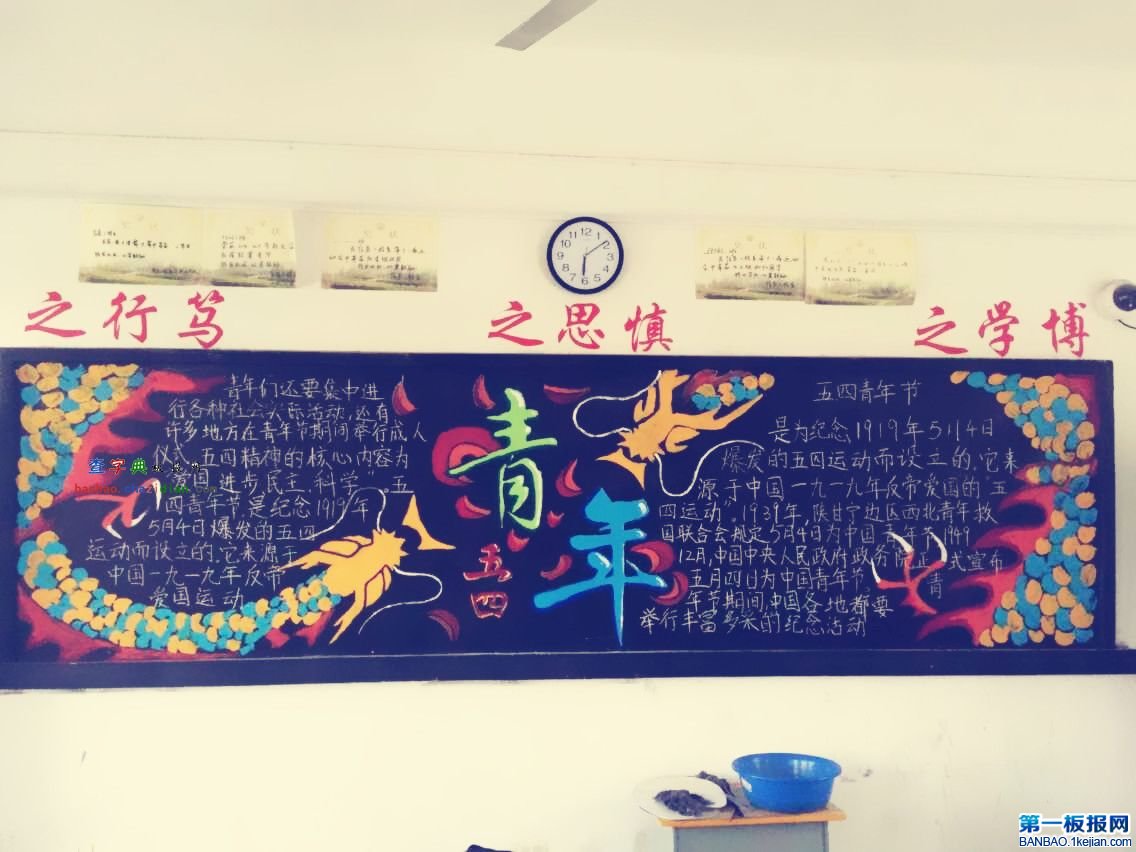 之行笃
之思慎
之学博
12
1
2
3
4
5
6
7
8
9
10
11
青年
五四
五四青年节
是为纪念1919年5月4日
爆发的五四运动而设立的，它来
源于中国一九一九年反帝爱国的"五
四运动"。1939年，陕甘宁边区西北青年救
国联合会规定5月4日为中国青年节。1949
12月，中国中央人民政府政务院正式宣布
五月四日为中国青年节。青
年节期间，中国各地都要
举行丰富多采的纪念活动
青年们还要集中进
行各种社会实际活动，还有
许多地方在青年节期间举行成人
仪式。五四精神的核心内容为
爱国、进步、民主、科学。五
四青年节，是纪念1919年
5月4日爆发的五四
运动而设立的，它来源于
中国一九一九年反帝
爱国运动
查字典
第一板报网
BANBAO.1kejian.com